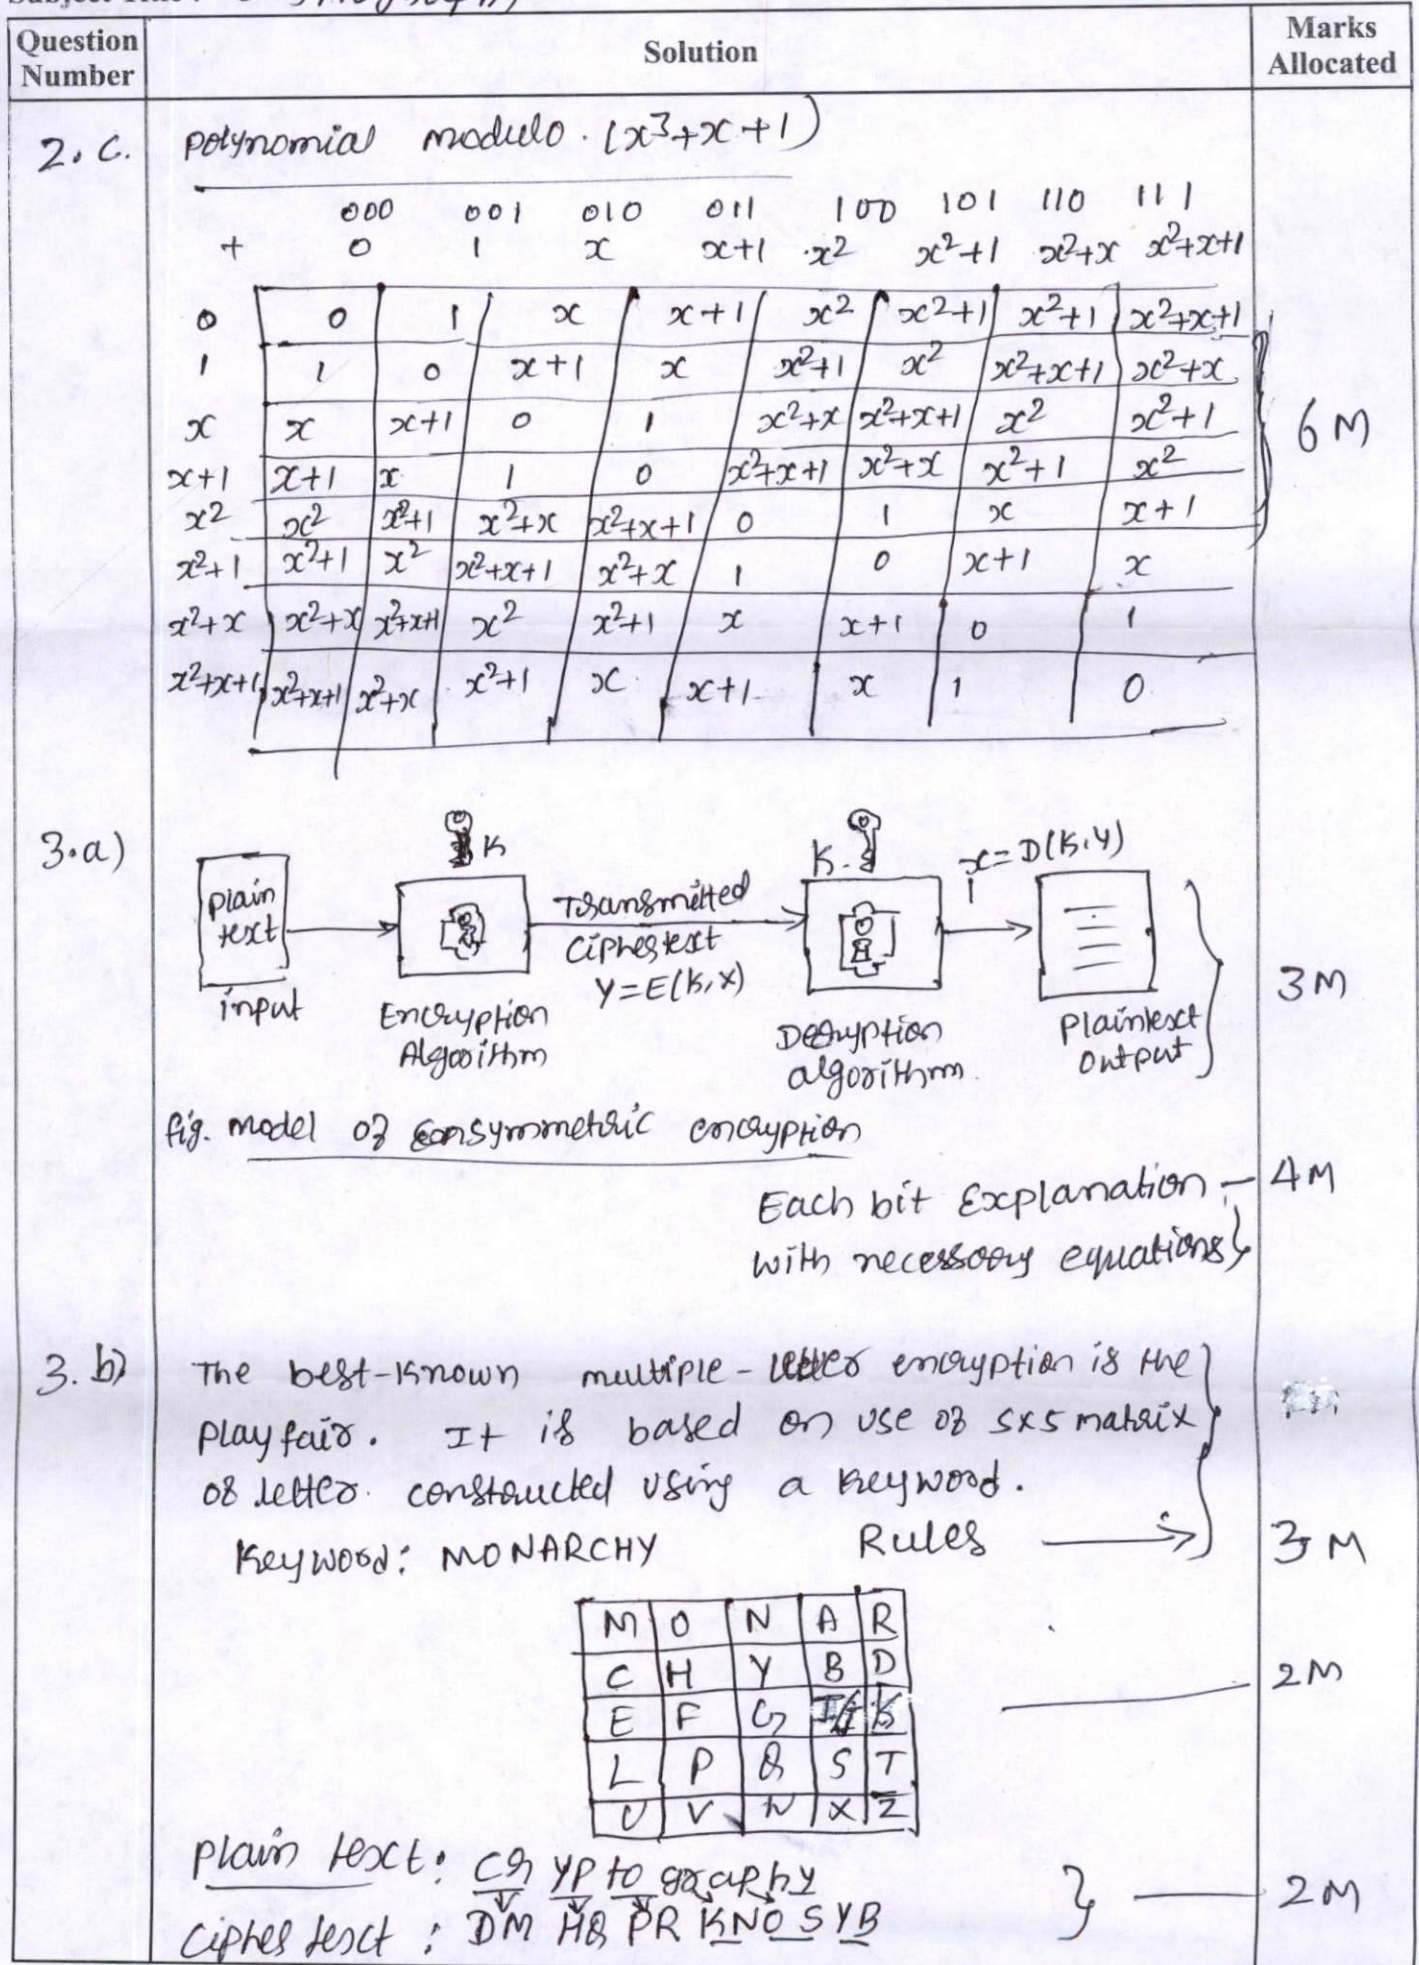 Question Number
Solution
Marks Allocated
2.C. polynomial modulo (x³+x+1)
000 001 010 011 100 101 110 111
+ 0 1 x x+1 x² x²+1 x²+x x²+x+1
0 0 1 x x+1 x² x²+1 x²+1 x²+x+1
1 1 0 x+1 x x²+1 x² x²+x+1 x²+x
x x x+1 0 1 x²+x x²+x+1 x² x²+1
6M
x+1 x+1 x 1 0 x²+x+1 x²+x x²+1 x²
x² x² x²+1 x²+x x²+x+1 0 1 x x+1
x²+1 x²+1 x² x²+x+1 x²+x 1 0 x+1 x
x²+x x²+x x²+x+1 x² x²+1 x x+1 0 1
x²+x+1 x²+x+1 x²+x x²+1 x x+1 x 1 0
3.a)
K
K.
x=D(K,Y)
Plain text
Transmitted
Ciphertext
Y=E(K,X)
input
Encryption Algorithm
Decryption algorithm
Plaintext output
3M
fig. model of symmetric encryption
Each bit Explanation - 4M
with necessary equations
3.b) The best-known multiple-letter encryption is the
playfair. It is based on use of 5x5 matrix
of letter constructed using a keyword.
Keyword: MONARCHY Rules 3M
M O N A R
C H Y B D
2M
E F G I/J K
L P Q S T
U V W X Z
Plain text: cr yp to graphy
2M
Cipher text: DM HQ PR KNO SYB